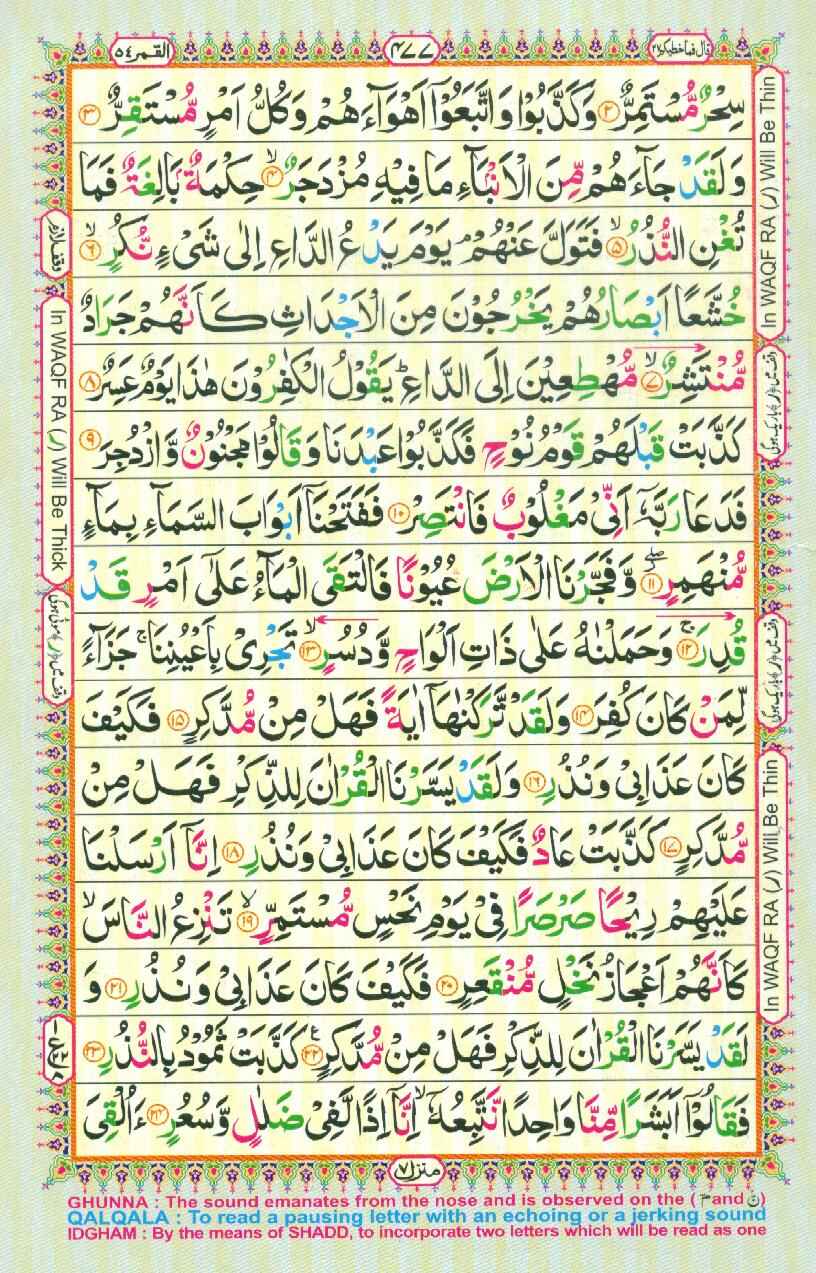 القمر ٥٤
٤٧٧
قال فما خطبكم ٢٧
سِحْرٌ مُّسْتَمِرٌّ ٢ وَكَذَّبُوْا وَاتَّبَعُوْٓا اَهْوَآءَهُمْ وَكُلُّ اَمْرٍ مُّسْتَقِرٌّ ٣
وَلَقَدْ جَآءَهُمْ مِّنَ الْاَنْۢبَآءِ مَا فِيْهِ مُزْدَجَرٌ ٤ۙ حِكْمَةٌۢ بَالِغَةٌ فَمَا
تُغْنِ النُّذُرُ ٥ۙ فَتَوَلَّ عَنْهُمْ ۘ يَوْمَ يَدْعُ الدَّاعِ اِلٰى شَيْءٍ نُّكُرٍ ٦ۙ
خُشَّعًا اَبْصَارُهُمْ يَخْرُجُوْنَ مِنَ الْاَجْدَاثِ كَاَنَّهُمْ جَرَادٌ
مُّنْتَشِرٌ ٧ۙ مُّهْطِعِيْنَ اِلَى الدَّاعِ ؕ يَقُوْلُ الْكٰفِرُوْنَ هٰذَا يَوْمٌ عَسِرٌ ٨
كَذَّبَتْ قَبْلَهُمْ قَوْمُ نُوْحٍ فَكَذَّبُوْا عَبْدَنَا وَقَالُوْا مَجْنُوْنٌ وَّازْدُجِرَ ٩
فَدَعَا رَبَّهٗٓ اَنِّيْ مَغْلُوْبٌ فَانْتَصِرْ ١٠ فَفَتَحْنَآ اَبْوَابَ السَّمَآءِ بِمَآءٍ
مُّنْهَمِرٍ ١١ۖ وَّفَجَّرْنَا الْاَرْضَ عُيُوْنًا فَالْتَقَى الْمَآءُ عَلٰٓى اَمْرٍ قَدْ
قُدِرَ ١٢ۚ وَحَمَلْنٰهُ عَلٰى ذَاتِ اَلْوَاحٍ وَّدُسُرٍ ١٣ۙ تَجْرِيْ بِاَعْيُنِنَا ۚ جَزَآءً
لِّمَنْ كَانَ كُفِرَ ١٤ وَلَقَدْ تَّرَكْنٰهَآ اٰيَةً فَهَلْ مِنْ مُّدَّكِرٍ ١٥ فَكَيْفَ
كَانَ عَذَابِيْ وَنُذُرِ ١٦ وَلَقَدْ يَسَّرْنَا الْقُرْاٰنَ لِلذِّكْرِ فَهَلْ مِنْ
مُّدَّكِرٍ ١٧ كَذَّبَتْ عَادٌ فَكَيْفَ كَانَ عَذَابِيْ وَنُذُرِ ١٨ اِنَّآ اَرْسَلْنَا
عَلَيْهِمْ رِيْحًا صَرْصَرًا فِيْ يَوْمِ نَحْسٍ مُّسْتَمِرٍّ ١٩ۙ تَنْزِعُ النَّاسَ ۙ
كَاَنَّهُمْ اَعْجَازُ نَخْلٍ مُّنْقَعِرٍ ٢٠ فَكَيْفَ كَانَ عَذَابِيْ وَنُذُرِ ٢١ وَ
لَقَدْ يَسَّرْنَا الْقُرْاٰنَ لِلذِّكْرِ فَهَلْ مِنْ مُّدَّكِرٍ ٢٢ۧ كَذَّبَتْ ثَمُوْدُ بِالنُّذُرِ ٢٣
فَقَالُوْٓا اَبَشَرًا مِّنَّا وَاحِدًا نَّتَّبِعُهٗٓ ۙ اِنَّآ اِذًا لَّفِيْ ضَلٰلٍ وَّسُعُرٍ ٢٤ ءَاُلْقِيَ
In WAQF RA (ر) Will Be Thin
وقف میں (ر) باریک ہوگی
وقف میں (ر) باریک ہوگی
In WAQF RA (ر) Will Be Thin
وقف لازم
In WAQF RA (ر) Will Be Thick
وقف میں (ر) موٹی ہوگی
منزل ٧
GHUNNA : The sound emanates from the nose and is observed on the ( م and ن )
QALQALA : To read a pausing letter with an echoing or a jerking sound
IDGHAM : By the means of SHADD, to incorporate two letters which will be read as one